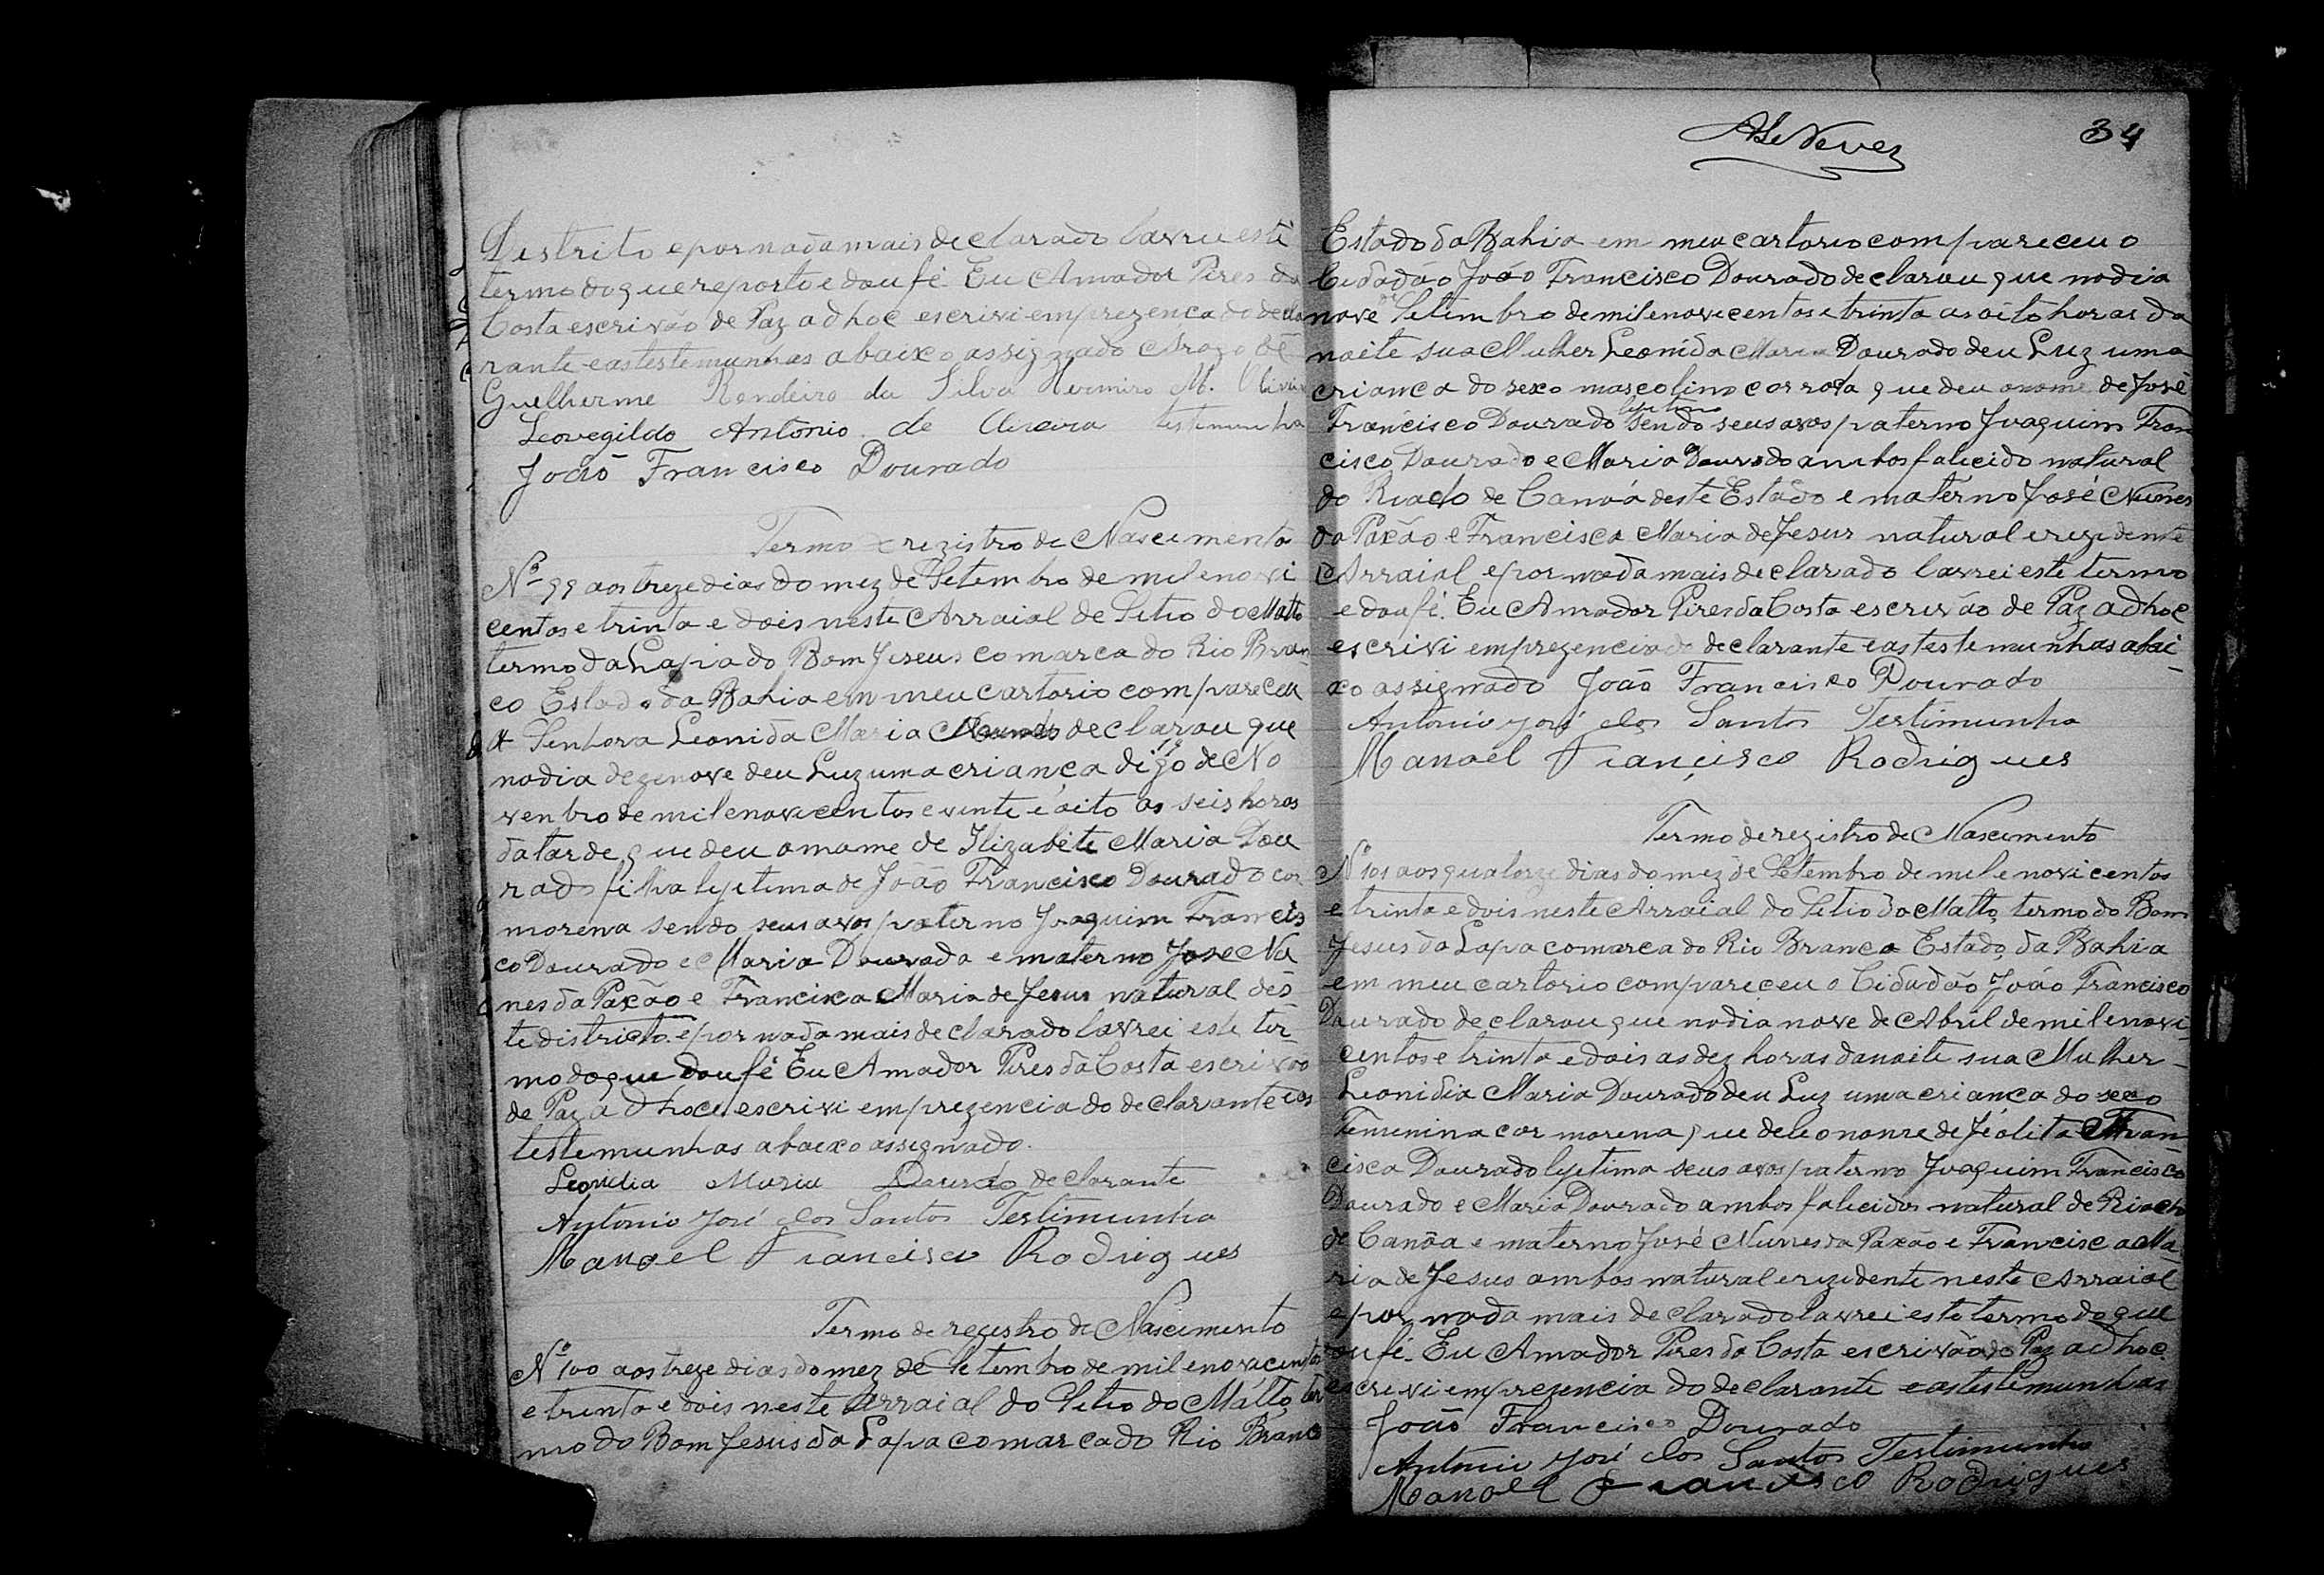 Distrito epornadamaisdeclarado lavrei este
termo doquereporto e doufé. Eu Amador Pires da
Costa escrivão de Paz adhoc escrivi emprezenca do decla
rante eastestemunhas abaixo assignado Arogo de
Guelherme Rendeiro da Silva Hermiro M. Oliveira
Leovegildo Antonio de testemunha
João Francisco Dourado
Termo registro de Nascimento
Nº 99 aos treze dias do mez de Setembro de mil enovi
centos e trinta e dois neste Arraial de Sitio do Matto
termo da Lapa do Bom Jezeus comarca do Rio Bran
co Estado da Bahia em meu cartorio compareceu
A Senhora Leonida Maria declarou que
nodia dezenove deu Luz uma criança digo de No
venbro de mil enovecentos e vinte e oito as seis horas
da tarde que deu onome de Ilizabete Maria Dou
rado filha lejetima de João Francisco Dourado cor
morena sendo seus avos paterno Joaquim Francis
co Dourado e Maria Dourada e materno Jose Nu
nes da Paxão e Francisca Maria de Jesus natural des
te districto epor nada mais declarado lavrei este ter
mo doque doufé Eu Amador Pires da Costa escrivão
de Paz adhoce escrivi emprezencia do declarante eas
testemunhas abaixo assignado.
Leonidia Maria Dourado declarante
Antonio José dos Santos Testimunha
Manoel Francisco Rodrigues
Termo de registro de Nascimento
Nº 100 aos treze dias do mez de Setembro de mil enovecentos
e trinta e dois neste Arraial do Sitio do Matto, ter
mo do Bom Jesus da Lapa comarca do Rio Branco
34
Estado da Bahia em meu cartorio compareceu o
Cidadão João Francisco Dourado declarou que nodia
nove de Setembro de mil enovecentos e trinta as oito horas da
noite sua Mulher Leonida Maria Dourado deu Luz uma
crianca do sexo mascolino cor que deu onome de José
Francisco Dourado lejetimo sendo seus avos paterno Joaquim Fran
cisco Dourado e Maria Dourado ambos falicido natural
do Riacho de Canôa deste Estado e materno José Nunes
da Paxão e Francisca Maria de Jesus natural erezidente
Arraial epor nada mais declarado lavrei este termo
e doufé. Eu Amador Pires da Costa escrivão de Paz adhoc
escrivi emprezencia do declarante eastestemunhas abai
xo assignado João Francisco Dourado
Antonio José dos Santos Testimunha
Manoel Francisco Rodrigues
Termo de registro de Nascimento
Nº 101 aos quatorze dias do mez de Setembro de mil enovicentos
e trinta e dois neste Arraial do Setio do Matto, termo do Bom
Jesus da Lapa comarca do Rio Branco Estado da Bahia
em meu cartorio compareceu o Cidadão João Francisco
Dourado declarou que nodia nove de Abril de mil enovi
centos e trinta e dois as dez horas da noite sua Mulher
Leonidia Maria Dourado deu Luz uma crianca do sexo
Femenina cor morena que deu onome de Fran
cisca Dourado lejetima seus avos paterno Joaquim Francisco
Dourado e Maria Dourado ambos falicidos natural de Riacho
de Canôa e materno José Nunes da Paxão e Francisca Ma
ria de Jesus ambos natural erezidente neste Arraial
epor nada mais declarado lavrei este termo do que
doufé. Eu Amador Pires da Costa escrivão de Paz adhoc.
escrivi empresencia do declarante eastestemunhas
João Francisco Dourado
Antonio José dos Santos Testimunha
Manoel Francisco Rodrigues